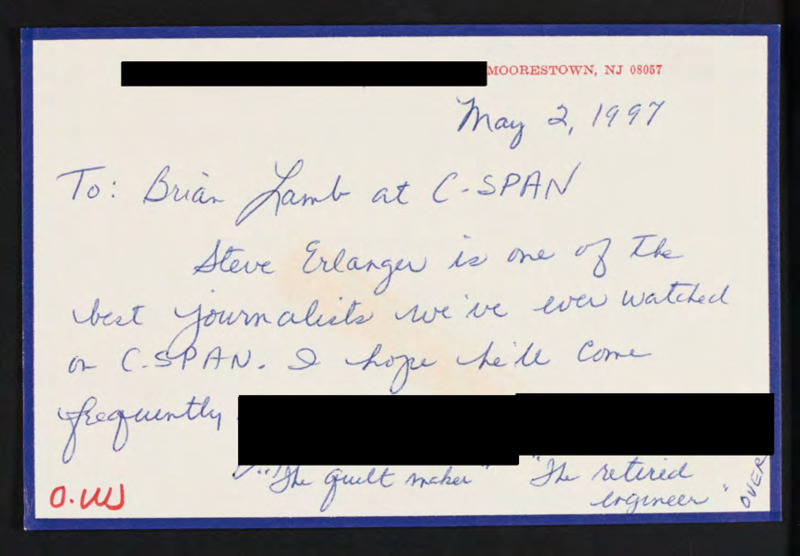 MOORESTOWN, NJ 08057
May 2, 1997
To: Brian Lamb at C-SPAN
Steve Erlanger is one of the
best journalists we've ever watched
on C-SPAN. I hope he'll come
frequently
"The quilt maker" "The retired
engineer"
OVER
O.W